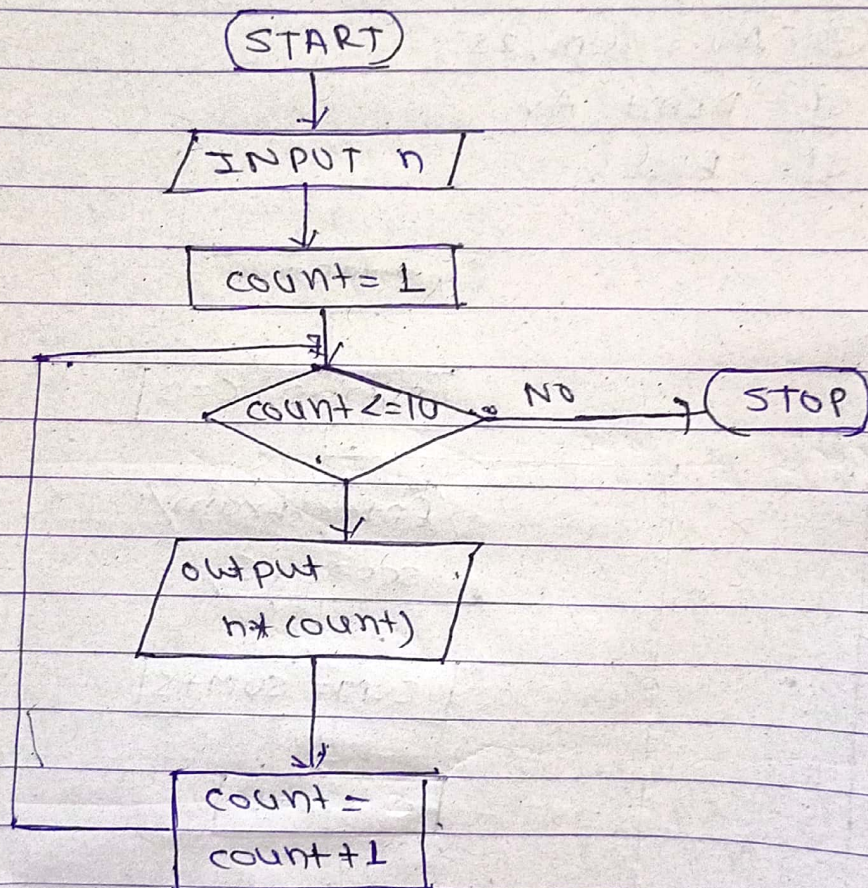 START
INPUT n
count = 1
count <= 10
NO
STOP
output
n* count)
count =
count + 1